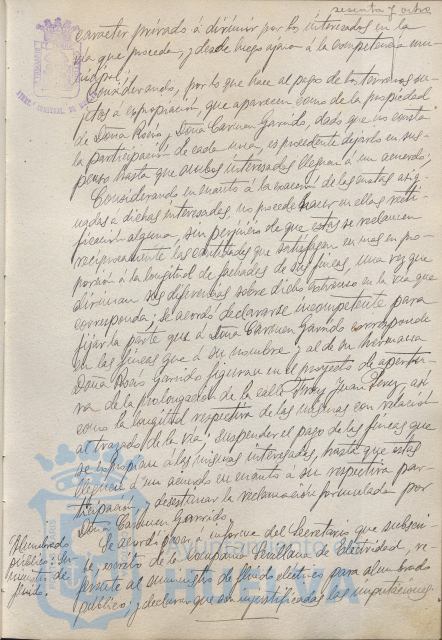 sesenta y ocho
carácter privado á dirimir por los interesados en la
vía que proceda, y desde luego ajena á la competencia mu-
nicipal;
Considerando, por lo que hace al pago de los terrenos su-
jetos á expropiación, que aparecen como de la propiedad
de Doña Rocío y Doña Carmen Garrido, dado que no consta
la participación de cada una, es procedente dejarlo en sus-
penso hasta que ambas interesadas lleguen á un acuerdo;
Considerando en cuanto á la exacción de las cuotas asig-
nadas á dichas interesadas, no procede hacer en ellas recti-
ficación alguna, sin perjuicio de que éstas se reclamen
recíprocamente las cantidades que satisfagan en más en pro-
porción á la longitud de fachadas de sus fincas, una vez que
diriman sus diferencias sobre dicho extremo en la vía que
corresponda; se acordó declararse incompetente para
fijar la parte que á Doña Carmen Garrido corresponde
en las fincas que á su nombre y al de su hermana
Doña Rocío Garrido figuran en el proyecto de apertu-
ra de la prolongación de la calle Fray Juan Pérez, así
como la longitud respectiva de las mismas con relación
al trazado de la vía; suspender el pago de las fincas que
se expropian á las mismas interesadas, hasta que éstas
lleguen á un acuerdo en cuanto á su respectiva par-
ticipación, y desestimar la reclamación formulada por
Doña Carmen Garrido.
Alumbrado
público: su-
ministro de
fluido.
Se acordó pasar á informe del Secretario que subscri-
be, escrito de la Compañía Sevillana de Electricidad, re-
ferente al suministro de fluido eléctrico para alumbrado
público; y declarar que son injustificadas las imputaciones
Ayuntamiento de
HUELVA